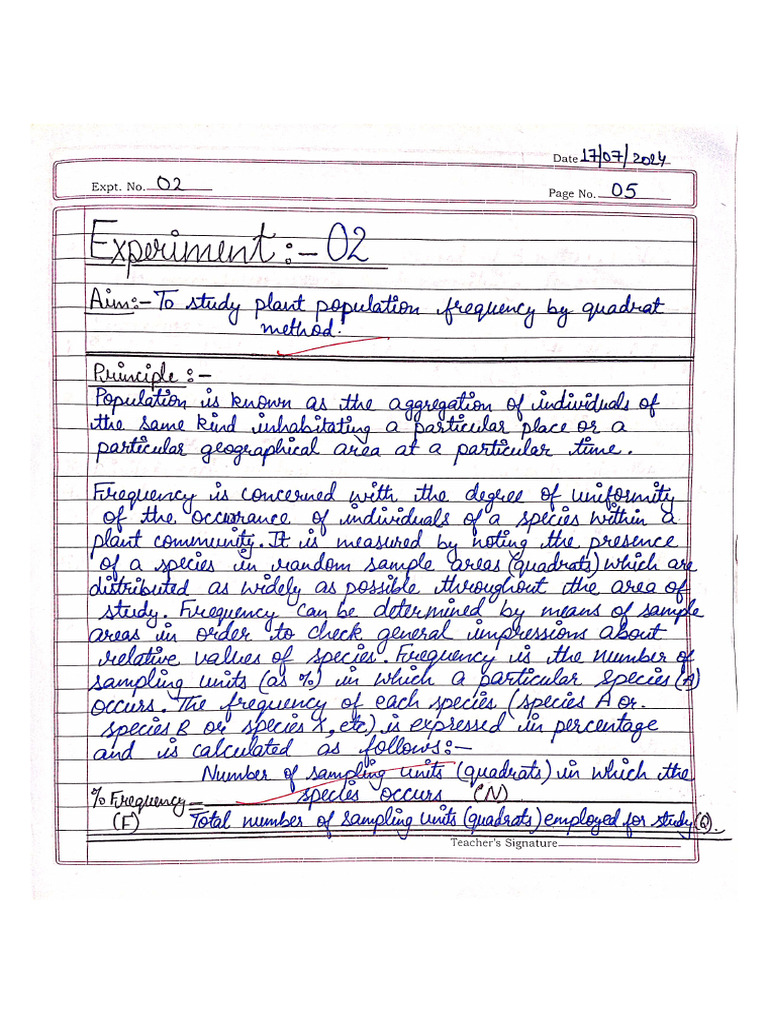 Date 17/07/2024
Expt. No. 02
Page No. 05
Experiment:- 02
Aim:- To study plant population frequency by quadrat
method.
Principle:-
Population is known as the aggregation of individuals of
the same kind inhabitating a particular place or a
particular geographical area at a particular time.
Frequency is concerned with the degree of uniformity
of the occurrance of individuals of a species within a
plant community. It is measured by noting the presence
of a species in random sample areas (quadrats) which are
distributed as widely as possible throughout the area of
study. Frequency can be determined by means of sample
areas in order to check general impressions about
relative values of species. Frequency is the number of
sampling units (as %) in which a particular species (A)
occurs. The frequency of each species (species A or
species B or species X, etc) is expressed in percentage
and is calculated as follows:-
Number of sampling units (quadrats) in which the
% Frequency = species occurs (N)
(F) Total number of sampling units (quadrats) employed for study (Q).
Teacher's Signature